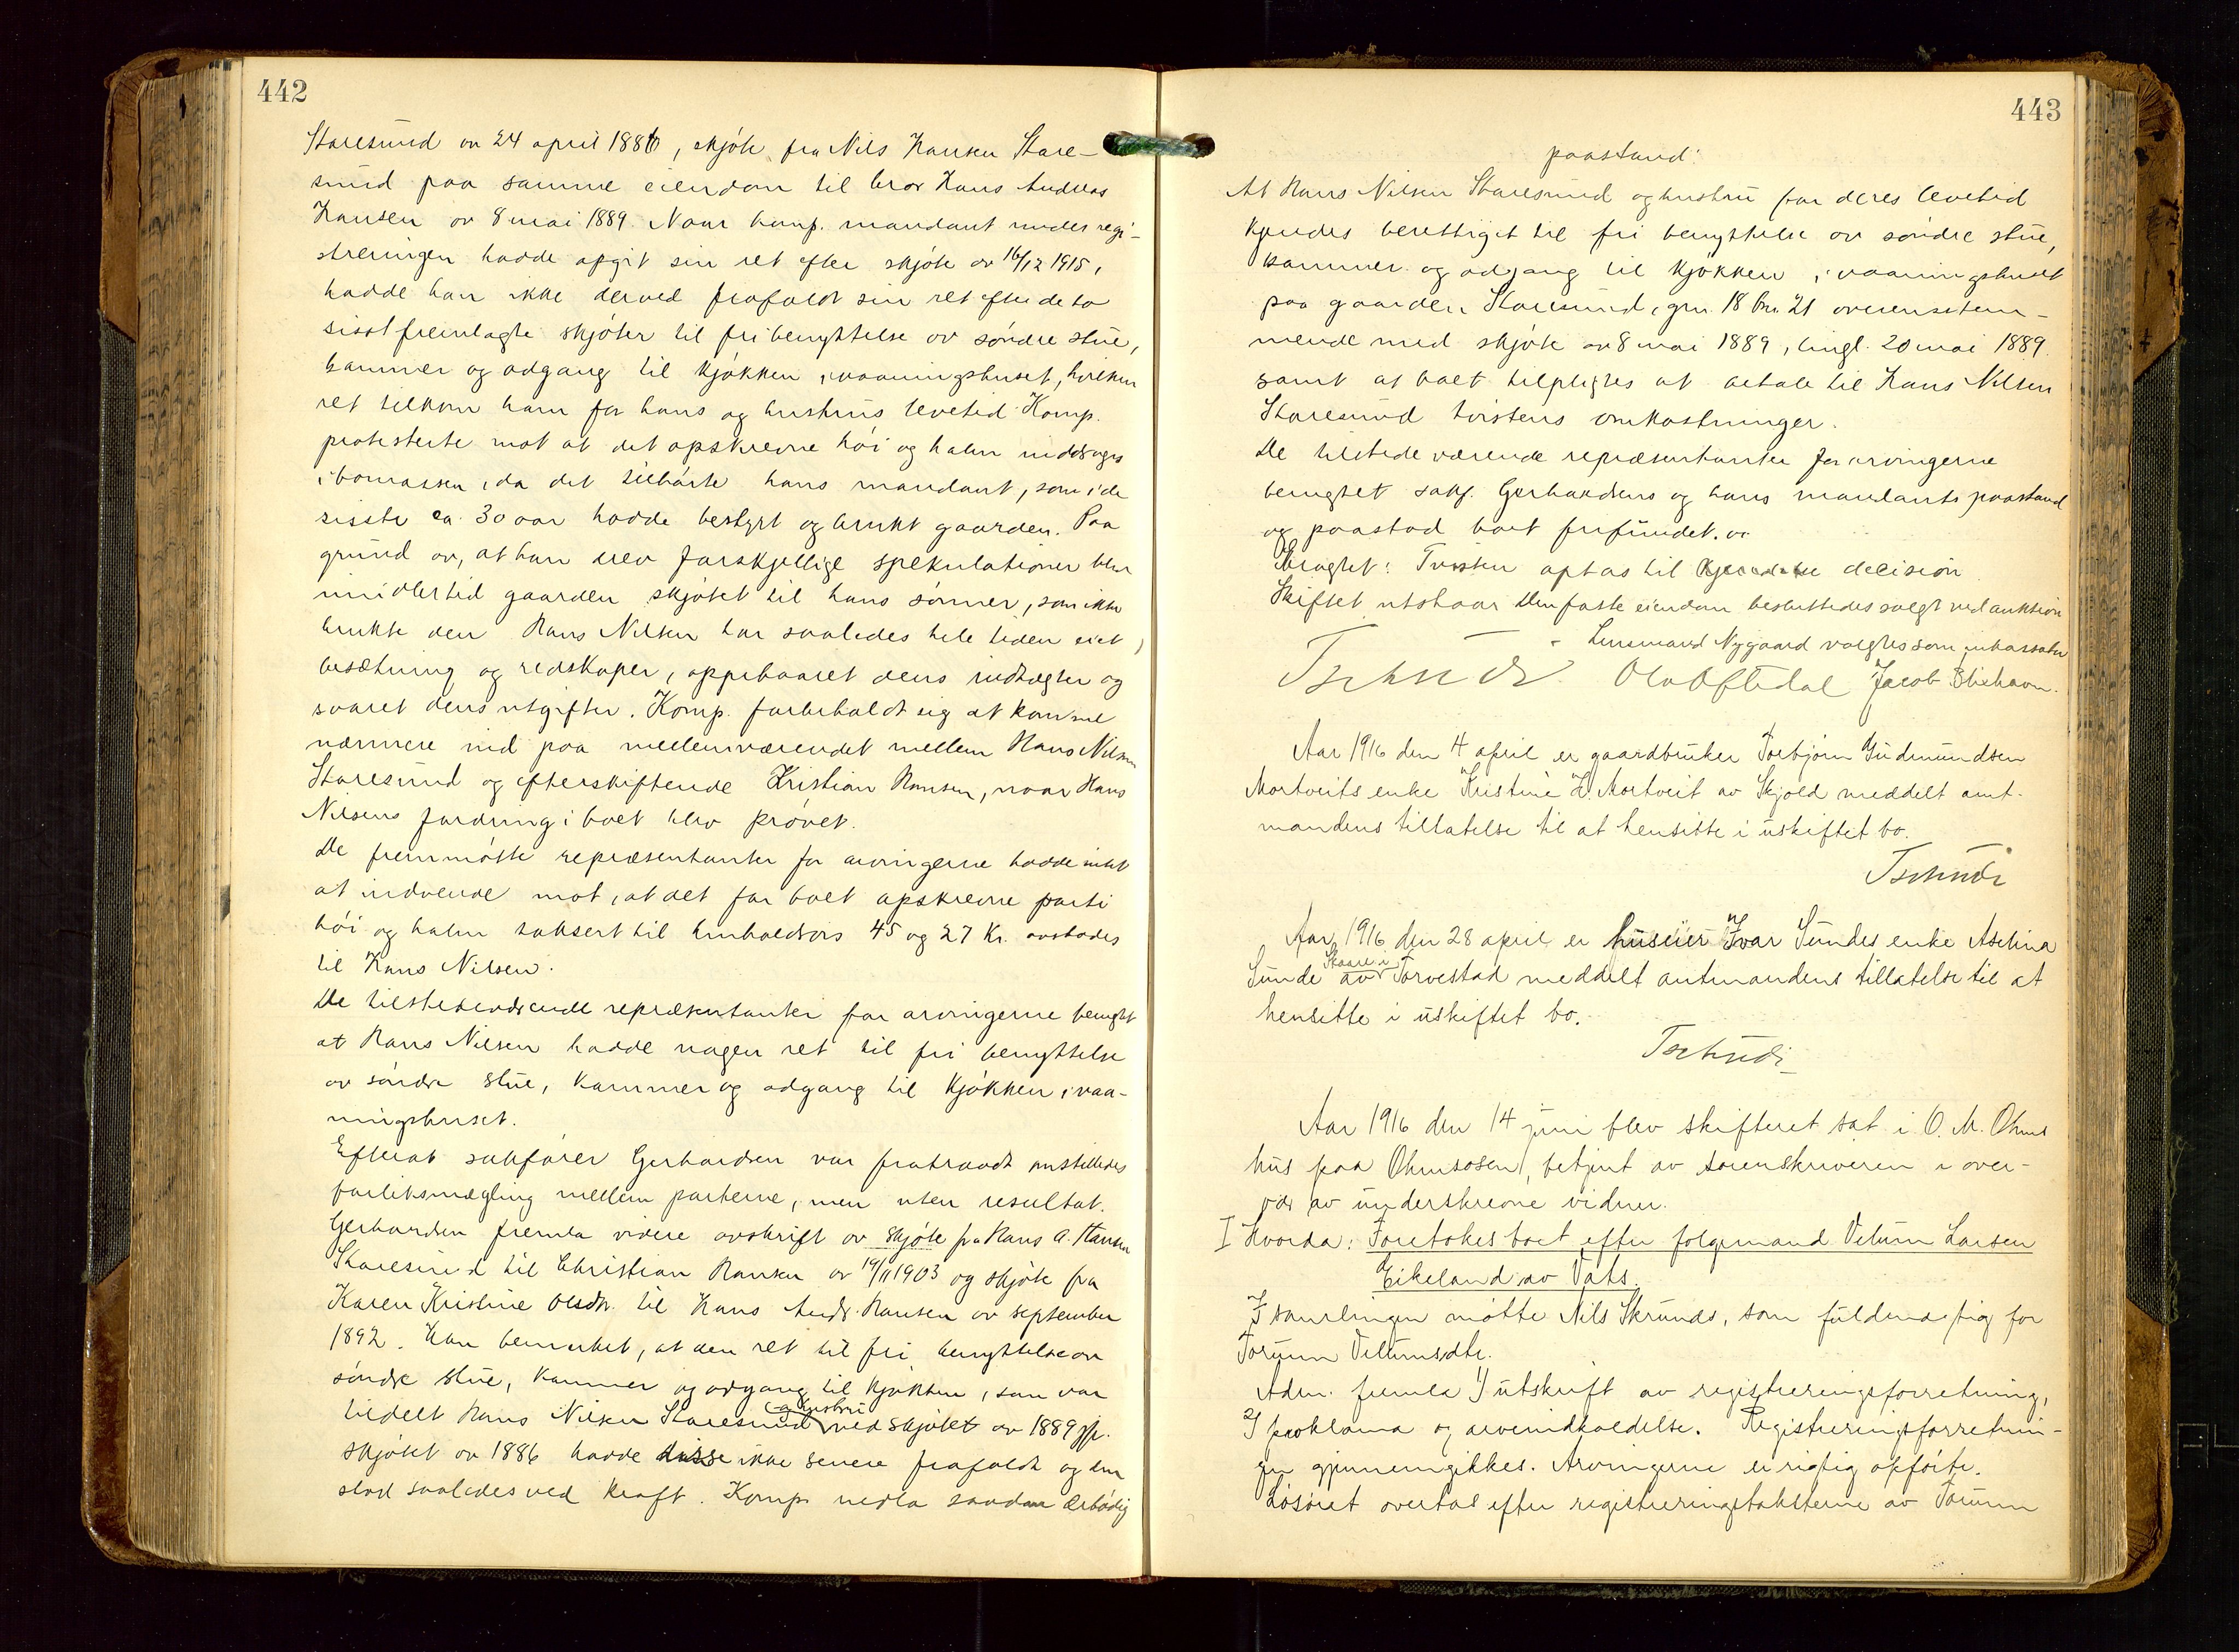 442
Staresund av 24 april 1886, skjøte fra Nils Hansen Stare-
sund paa samme eiendom til bror Hans Andreas
Hansen av 8 mai 1889. Naar komp. mandant under regi-
streringen hadde opgit sin ret efter skjøte av 16/12 1915,
hadde han ikke derved frafaldt sin ret efter de to
sisst fremlagte skjøter til fri benyttelse av søndre stue,
kammer og adgang til kjøkken i vaaningshuset, hvilken
ret tilkom ham for hans og hustrus levetid. Komp.
protesterte mot at det opskrevne høi og halm inddroges
i bomassen, da det tilhørte hans mandant, som i de
sisste ca. 30 aar hadde bestyrt og brukt gaarden. Paa
grund av, at han drev forskjellige spekulationer blev
imidlertid gaarden skjøtet til hans sønner, som ikke
brukte den. Hans Nilsen har saaledes hele tiden eiet
besætning og redskaper, oppebaaret dens indtægter og
svaret dens utgifter. Komp. forbeholdt sig at komme
nærmere ind paa mellemværendet mellem Hans Nilsen
Staresund og efterskiftende Kristian Hansen, naar Hans
Nilsens fordring i boet blev prøvet.
De fremmøtte repræsentanter for arvingerne hadde intet
at indvende mot, at det for boet opskrevne parti
høi og halm taksert til henholdsvis 45 og 27 Kr. avstodes
til Hans Nilsen.
De tilstedeværende repræsentanter for arvingerne benegtet
at Hans Nilsen hadde nogen ret til fri benyttelse
av søndre stue, kammer og adgang til kjøkken i vaa-
ningshuset.
Efterat sakfører Gerhardsen var fratraadt anstilledes
forliksmægling mellem parterne, men uten resultat.
Gerhardsen fremla videre avskrift av skjøte fra Hans A. Hansen
Staresund til Christian Hansen av 19/11 1903 og skjøte fra
Karen Kristine Olsdtr. til Hans Andr. Hansen av september
1892. Han bemerket, at den ret til fri benyttelse av
søndre stue, kammer og adgang til kjøkken, som var
tildelt Hans Nilsen Staresund og hustru ved skjøtet av 1889 jfr.
skjøtet av 1886 hadde disse ikke senere frafaldt og den
stod saaledes ved kraft. Komp. nedla saadan ærbødig
443
paastand:
At Hans Nilsen Staresund og hustru for deres levetid
kjendes berettiget til fri benyttelse av søndre stue,
kammer og adgang til kjøkken i vaaningshuset
paa gaarden Staresund, gnr. 18 bnr. 21 overensstem-
mende med skjøte av 8 mai 1889, tingl. 20 mai 1889.
samt at boet tilpligtes at betale til Hans Nilsen
Staresund tvistens omkostninger.
De tilstedeværende repræsentanter for arvingerne
benegtet sakf. Gerhardsens og hans mandants paastand
og paastod boet frifundet.
Eragtet: Tvisten optas til decision
Skiftet utstaar Den faste eiendom besluttedes solgt ved auktion
- Lensmand Nygaard valgtes som inkassator
Tschudi Ola Oftedal Jacob Blixhavn.
Aar 1916 den 4 april er gaardbruker Torbjørn Gudmundsen
Mortveits enke Kristine H. Mortveit av Skjold meddelt amt-
mandens tillatelse til at hensitte i uskiftet bo.
Tschudi
Aar 1916 den 28 april er huseier Ivar Sundes enke Aselina
Sunde av Skaare i Torvestad meddelt amtmandens tillatelse til at
hensitte i uskiftet bo.
Tschudi
Aar 1916 den 14 juni blev skifteret sat i O. M. Ohms
hus paa Ølensosen, betjent av sorenskriveren i over-
vær av underskrevne vidner.
I Hvorda: Foretokes boet efter folgemand Vetum Larsen
Eikeland av Vats.
I samlingen møtte Nils Skrunds, som fuldmægtig for
Torunn Vetumsdtr.
Adm. fremla 1) utskrift av registreringsforretning,
2) proklama og arveindkaldelse. Registreringsforretnin-
gen gjennemgikkes. Arvingerne er rigtig opførte.
Løsøret overtas efter registreringstaksterne av Torunn